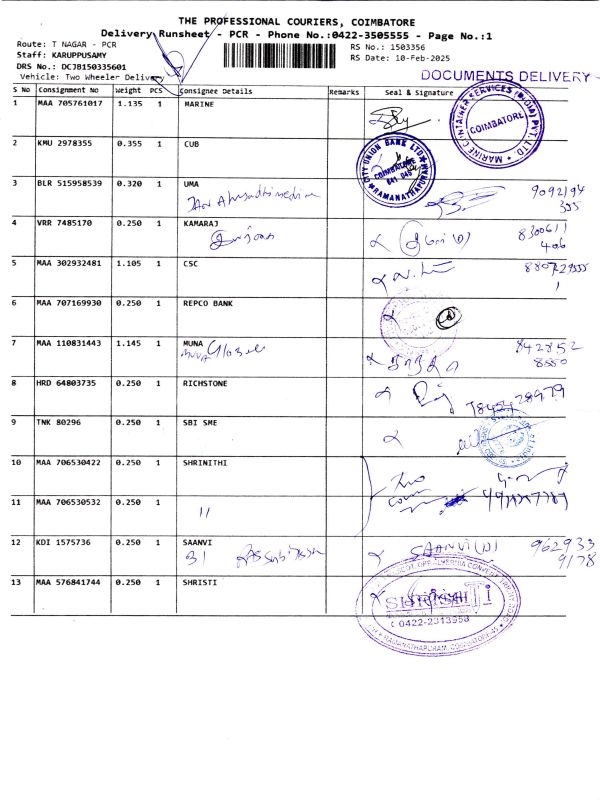 THE PROFESSIONAL COURIERS, COIMBATORE
Delivery Runsheet - PCR - Phone No.:0422-3505555 - Page No.:1
Route: T NAGAR - PCR
RS No.: 1503356
Staff: KARUPPUSAMY
RS Date: 10-Feb-2025
DRS No.: DCJB150335601
Vehicle: Two Wheeler Delivery
DOCUMENTS DELIVERY
S No Consignment No Weight PCS Consignee Details Remarks Seal & Signature
1 MAA 705761017 1.135 1 MARINE
MARINE CONTAINER SERVICES (INDIA) PVT. LTD.
COIMBATORE
2 KMU 2978355 0.355 1 CUB
CITY UNION BANK LTD
COIMBATORE
641 045
RAMANATHAPURAM
3 BLR 515958539 0.320 1 UMA
9092194
395
4 VRR 7485170 0.250 1 KAMARAJ
8300611
406
5 MAA 302932481 1.105 1 CSC
6 MAA 707169930 0.250 1 REPCO BANK
7 MAA 110831443 1.145 1 MUNA
MUNA Global
842852
8550
8 HRD 64803735 0.250 1 RICHSTONE
9 TNK 80296 0.250 1 SBI SME
10 MAA 706530422 0.250 1 SHRINITHI
11 MAA 706530532 0.250 1 11
12 KDI 1575736 0.250 1 SAANVI
31
SAANVI (N)
962933
9178
13 MAA 576841744 0.250 1 SHRISTI
0422-2313558
RAMANATHAPURAM, COIMBATORE-45